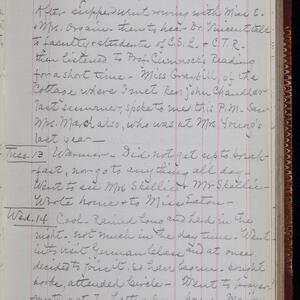 After supper went rowing with Miss E.
+ Mrs. Organ. then to hear Dr. Vincent talk
to faculty + students of C.S.L. + C.T.R.
then listened to Prof. Cumnock's Reading
for a short time - Miss Greenish, of the
Cottage where I met Rev. John Chandler
last summer, spoke to me this P.M. Saw
Mrs. March also, who was at Mrs. Young's
last year -
Tues. 13 Warmer - Did not get up to break-
fast, nor go to anything all day -
Went to see Mrs Skillie + Mr Skillie
Wrote home + to Miss Eaton -
Wed. 14 Cool - Rained long and hard in the
night - not much in the day time - Went
into visit German Class and at once
decided to join it, so have begun - bought
books, attended Circle - Went to prayer